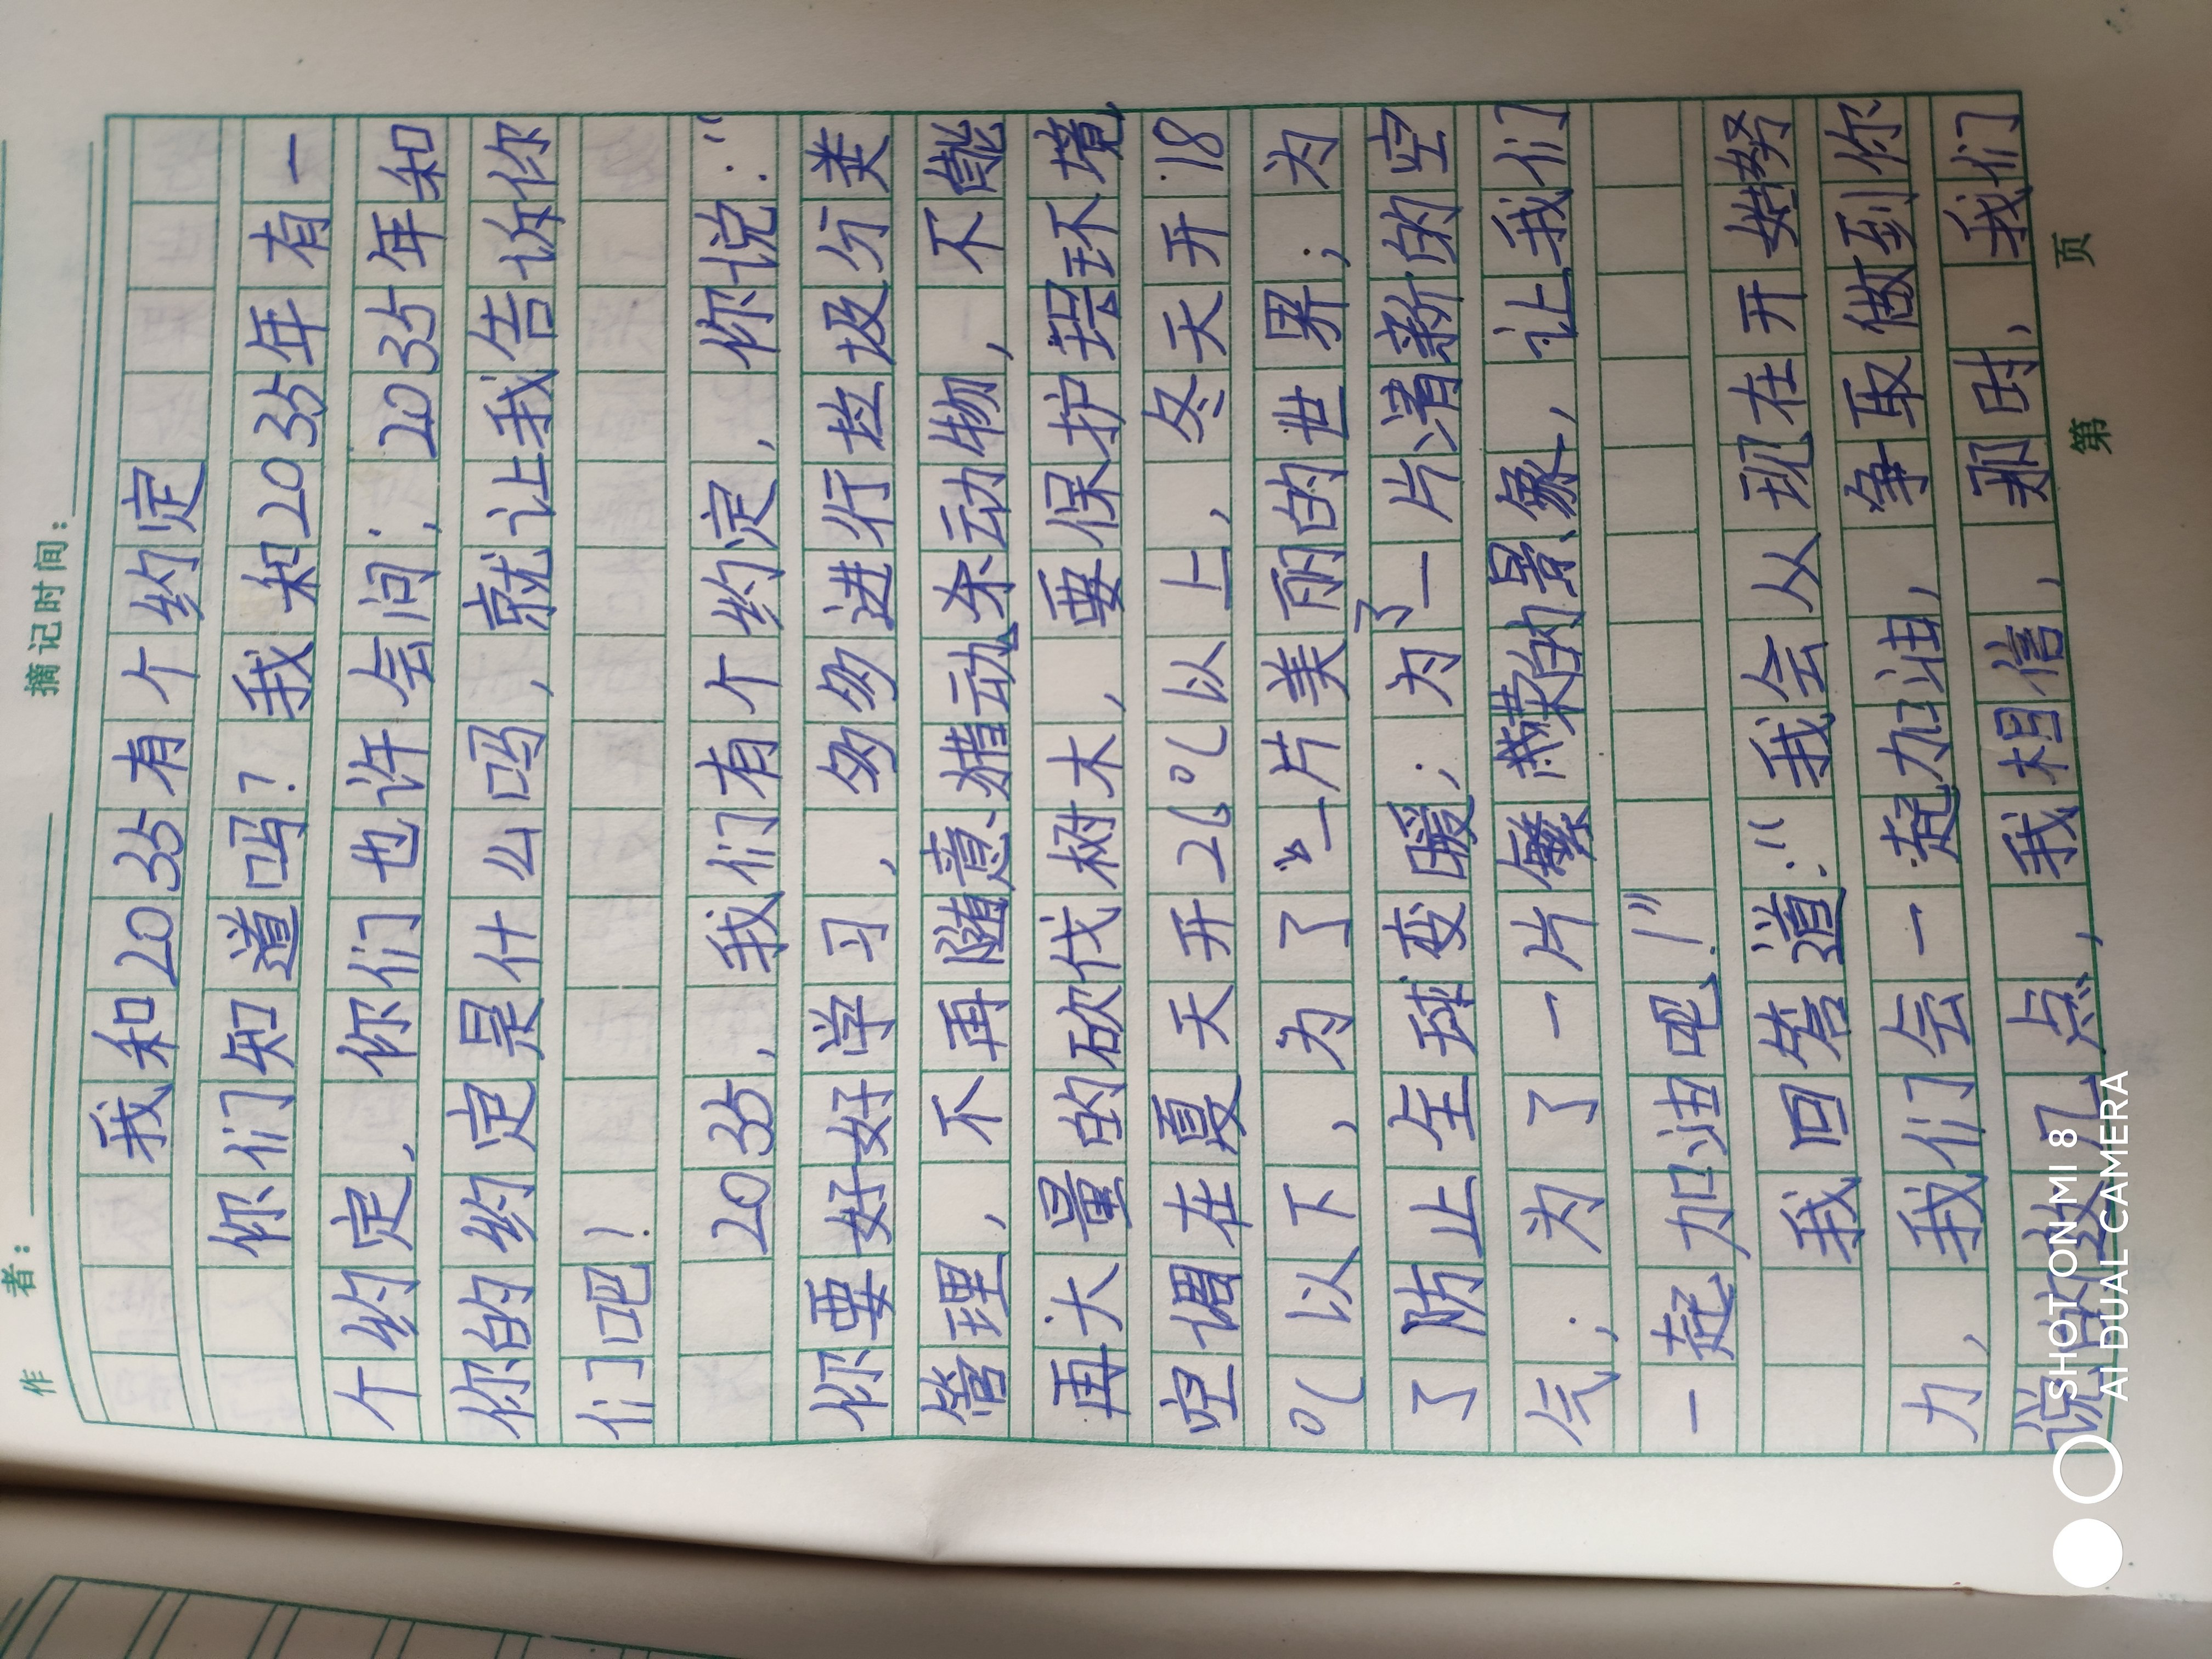 作者：
摘记时间：
我和2035有个约定
你们知道吗？我和2035年有一
个约定，你们也许会问；2035年和
你的约定是什么吗，就让我告诉你
们吧！
2035，我们有个约定，你说：“
你要好好学习，多多进行垃圾分类
管理，不再随意猎动杀动物，不能
再大量的砍伐树木，要保护环境
空调在夏天开26℃以上，冬天开18
℃以下，为了“一片美丽的世界；为
了防止全球变暖；为了一片清新的空
气；为了一片繁荣的景象，让我们
一起加油吧！”
我回答道：“我会从现在开始努
力，我们会一起加油，争取做到你
说的几点，我相信，那时，我们
第 页
SHOT ON MI 8
AI DUAL CAMERA